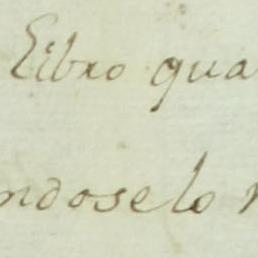 Libro qua
ndoselo